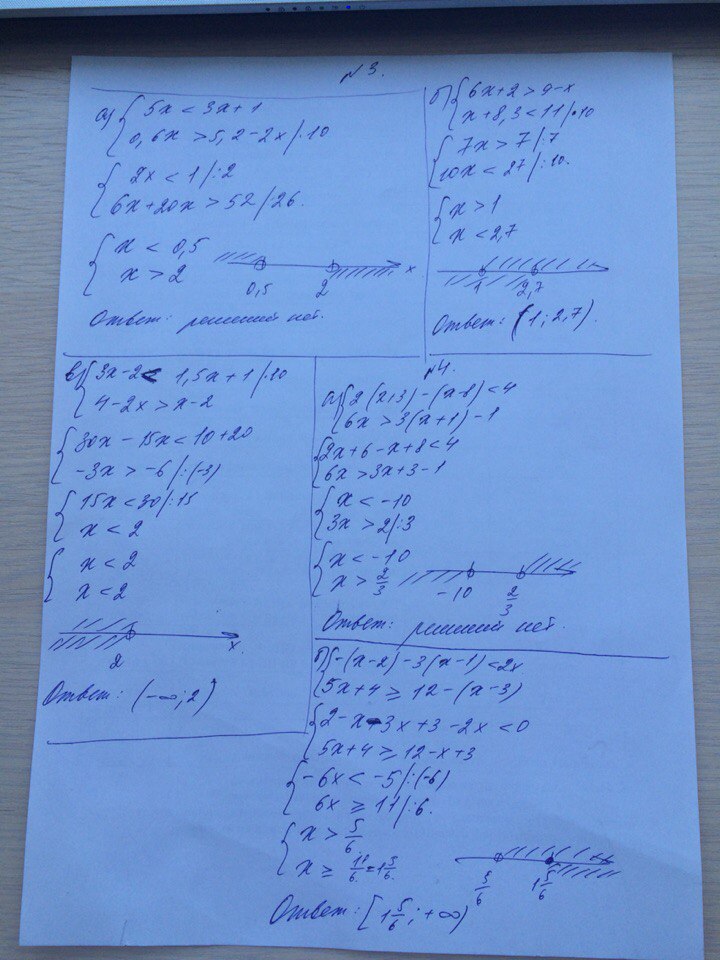 №3.
а) { 5x < 3x+1
0,6x > 5,2-2x /·10
{ 2x < 1 /:2
6x+20x > 52 /26.
{ x < 0,5
x > 2
0,5 2 x
Ответ: решений нет.
б) { 6x+2 > 9-x
x+8,3 < 11 /·10
{ 7x > 7 /:7
10x < 27 /:10.
{ x > 1
x < 2,7
1 2,7
Ответ: (1; 2,7).
в) { 3x-2 < 1,5x+1 /·10
4-2x > x-2
{ 30x-15x < 10+20
-3x > -6 /:(-3)
{ 15x < 30 /:15
x < 2
{ x < 2
x < 2
2 x.
Ответ: (-∞; 2)
№4.
а) { 2(x+3)-(x-8) < 4
6x > 3(x+1)-1
{ 2x+6-x+8 < 4
6x > 3x+3-1
{ x < -10
3x > 2 /:3
{ x < -10
x > 2/3
-10 2/3
Ответ: решений нет.
б) { -(x-2)-3(x-1) < 2x
5x+4 ≥ 12-(x-3)
{ 2-x-3x+3-2x < 0
5x+4 ≥ 12-x+3
{ -6x < -5 /:(-6)
6x ≥ 11 /:6.
{ x > 5/6
x ≥ 11/6 = 1 5/6.
5/6 1 5/6
Ответ: [1 5/6; +∞)